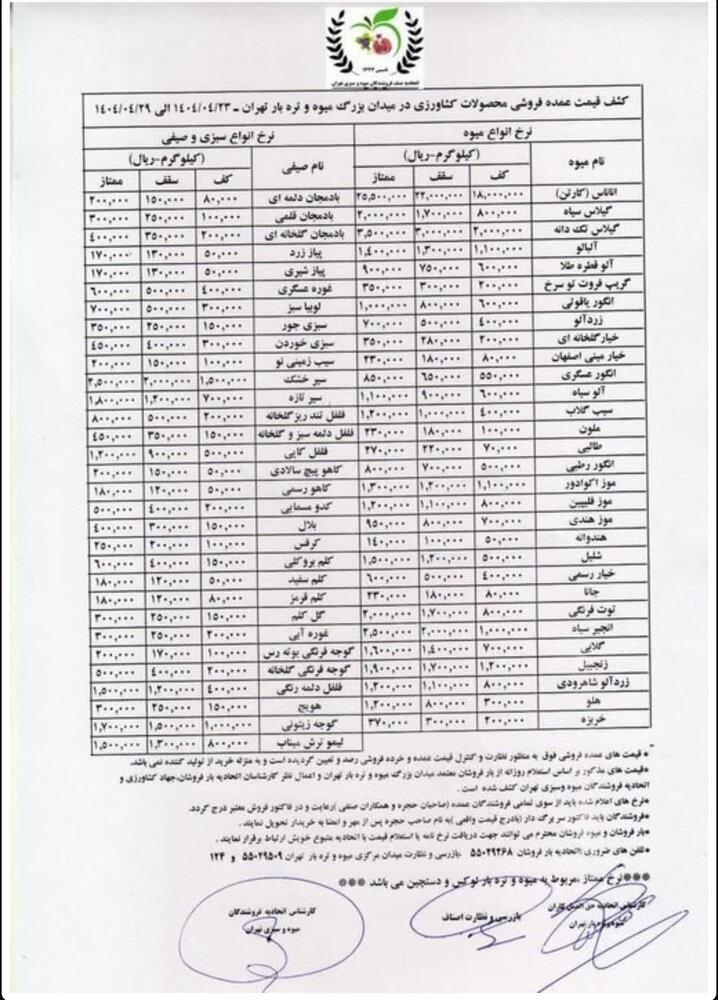 تاسیس ۱۳۲۳
اتحادیه صنف فروشندگان میوه و سبزی تهران
کشف قیمت عمده فروشی محصولات کشاورزی در میدان بزرگ میوه و تره بار تهران ـ ۱۴۰۴/۰۴/۲۳ الی ۱۴۰۴/۰۴/۲۹
نرخ انواع میوه نرخ انواع سبزی و صیفی
نام میوه (کیلوگرم-ریال) نام صیفی (کیلوگرم-ریال)
کف سقف ممتاز کف سقف ممتاز
اناناس (کارتن) ۱۸,۰۰۰,۰۰۰ ۲۲,۰۰۰,۰۰۰ ۲۵,۵۰۰,۰۰۰ بادمجان دلمه ای ۸۰,۰۰۰ ۱۵۰,۰۰۰ ۲۰۰,۰۰۰
گیلاس سیاه ۸۰۰,۰۰۰ ۱,۷۰۰,۰۰۰ ۲,۰۰۰,۰۰۰ بادمجان قلمی ۱۰۰,۰۰۰ ۲۵۰,۰۰۰ ۳۰۰,۰۰۰
گیلاس تک دانه ۲,۰۰۰,۰۰۰ ۳,۰۰۰,۰۰۰ ۳,۵۰۰,۰۰۰ بادمجان گلخانه ای ۲۰۰,۰۰۰ ۳۵۰,۰۰۰ ۴۰۰,۰۰۰
آلبالو ۱,۱۰۰,۰۰۰ ۱,۳۰۰,۰۰۰ ۱,۴۰۰,۰۰۰ پیاز زرد ۵۰,۰۰۰ ۱۳۰,۰۰۰ ۱۷۰,۰۰۰
آلو قطره طلا ۶۰۰,۰۰۰ ۷۵۰,۰۰۰ ۹۰۰,۰۰۰ پیاز شیری ۵۰,۰۰۰ ۱۳۰,۰۰۰ ۱۷۰,۰۰۰
گریپ فروت تو سرخ ۲۰۰,۰۰۰ ۳۰۰,۰۰۰ ۳۵۰,۰۰۰ غوره عسگری ۴۰۰,۰۰۰ ۵۰۰,۰۰۰ ۶۰۰,۰۰۰
انگور یاقوتی ۶۰۰,۰۰۰ ۸۰۰,۰۰۰ ۱,۰۰۰,۰۰۰ لوبیا سبز ۳۰۰,۰۰۰ ۵۰۰,۰۰۰ ۷۰۰,۰۰۰
زردآلو ۴۰۰,۰۰۰ ۵۰۰,۰۰۰ ۷۰۰,۰۰۰ سبزی جور ۱۵۰,۰۰۰ ۲۵۰,۰۰۰ ۳۵۰,۰۰۰
خیارگلخانه ای ۲۰۰,۰۰۰ ۲۸۰,۰۰۰ ۳۵۰,۰۰۰ سبزی خوردن ۳۰۰,۰۰۰ ۴۰۰,۰۰۰ ۴۵۰,۰۰۰
خیار مینی اصفهان ۸۰,۰۰۰ ۱۸۰,۰۰۰ ۲۳۰,۰۰۰ سیب زمینی نو ۱۰۰,۰۰۰ ۱۵۰,۰۰۰ ۲۰۰,۰۰۰
انگور عسگری ۵۵۰,۰۰۰ ۶۵۰,۰۰۰ ۸۵۰,۰۰۰ سیر خشک ۱,۵۰۰,۰۰۰ ۲,۰۰۰,۰۰۰ ۲,۵۰۰,۰۰۰
آلو سیاه ۶۰۰,۰۰۰ ۹۰۰,۰۰۰ ۱,۱۰۰,۰۰۰ سیر تازه ۷۰۰,۰۰۰ ۱,۲۰۰,۰۰۰ ۱,۸۰۰,۰۰۰
سیب گلاب ۴۰۰,۰۰۰ ۱,۰۰۰,۰۰۰ ۱,۲۰۰,۰۰۰ فلفل تند ریزگلخانه ۲۰۰,۰۰۰ ۵۰۰,۰۰۰ ۸۰۰,۰۰۰
ملون ۱۰۰,۰۰۰ ۱۸۰,۰۰۰ ۲۳۰,۰۰۰ فلفل دلمه سبز و گلخانه ۱۵۰,۰۰۰ ۳۵۰,۰۰۰ ۴۵۰,۰۰۰
طالبی ۷۰,۰۰۰ ۲۲۰,۰۰۰ ۲۷۰,۰۰۰ فلفل کاپی ۵۰۰,۰۰۰ ۹۰۰,۰۰۰ ۱,۲۰۰,۰۰۰
انگور رطبی ۵۰۰,۰۰۰ ۷۰۰,۰۰۰ ۸۰۰,۰۰۰ کاهو پیچ سالادی ۵۰,۰۰۰ ۱۵۰,۰۰۰ ۲۰۰,۰۰۰
موز اکوادور ۱,۱۰۰,۰۰۰ ۱,۲۰۰,۰۰۰ ۱,۳۰۰,۰۰۰ کاهو رسمی ۵۰,۰۰۰ ۱۲۰,۰۰۰ ۱۸۰,۰۰۰
موز فلیپین ۸۰۰,۰۰۰ ۱,۱۰۰,۰۰۰ ۱,۲۰۰,۰۰۰ کدو مسمایی ۲۰۰,۰۰۰ ۴۰۰,۰۰۰ ۵۰۰,۰۰۰
موز هندی ۷۰۰,۰۰۰ ۸۰۰,۰۰۰ ۹۵۰,۰۰۰ بلال ۱۵۰,۰۰۰ ۳۰۰,۰۰۰ ۴۰۰,۰۰۰
هندوانه ۵۰,۰۰۰ ۱۰۰,۰۰۰ ۱۴۰,۰۰۰ کرفس ۱۰۰,۰۰۰ ۲۰۰,۰۰۰ ۲۵۰,۰۰۰
شلیل ۵۰۰,۰۰۰ ۱,۲۰۰,۰۰۰ ۱,۵۰۰,۰۰۰ کلم بروکلی ۱۵۰,۰۰۰ ۴۰۰,۰۰۰ ۶۰۰,۰۰۰
خیار رسمی ۴۰۰,۰۰۰ ۵۰۰,۰۰۰ ۶۰۰,۰۰۰ کلم سفید ۵۰,۰۰۰ ۱۲۰,۰۰۰ ۱۸۰,۰۰۰
جانا ۸۰,۰۰۰ ۱۸۰,۰۰۰ ۲۳۰,۰۰۰ کلم قرمز ۸۰,۰۰۰ ۱۲۰,۰۰۰ ۱۸۰,۰۰۰
توت فرنگی ۸۰۰,۰۰۰ ۱,۷۰۰,۰۰۰ ۲,۰۰۰,۰۰۰ گل کلم ۱۵۰,۰۰۰ ۲۵۰,۰۰۰ ۳۰۰,۰۰۰
انجیر سیاه ۱,۰۰۰,۰۰۰ ۲,۰۰۰,۰۰۰ ۲,۵۰۰,۰۰۰ غوره آبی ۲۰۰,۰۰۰ ۲۵۰,۰۰۰ ۳۰۰,۰۰۰
گلابی ۷۰۰,۰۰۰ ۱,۴۰۰,۰۰۰ ۱,۶۰۰,۰۰۰ گوجه فرنگی بوته رس ۱۰۰,۰۰۰ ۱۷۰,۰۰۰ ۲۰۰,۰۰۰
زنجبیل ۱,۲۰۰,۰۰۰ ۱,۷۰۰,۰۰۰ ۱,۹۰۰,۰۰۰ گوجه فرنگی گلخانه ۲۰۰,۰۰۰ ۴۰۰,۰۰۰ ۵۰۰,۰۰۰
زردآلو شاهرودی ۸۰۰,۰۰۰ ۱,۱۰۰,۰۰۰ ۱,۲۰۰,۰۰۰ فلفل دلمه رنگی ۴۰۰,۰۰۰ ۱,۲۰۰,۰۰۰ ۱,۵۰۰,۰۰۰
هلو ۳۰۰,۰۰۰ ۸۰۰,۰۰۰ ۱,۲۰۰,۰۰۰ هویج ۱۵۰,۰۰۰ ۲۵۰,۰۰۰ ۳۰۰,۰۰۰
خربزه ۲۰۰,۰۰۰ ۳۰۰,۰۰۰ ۳۷۰,۰۰۰ گوجه زیتونی ۱,۰۰۰,۰۰۰ ۱,۵۰۰,۰۰۰ ۱,۷۰۰,۰۰۰
لیمو ترش میناب ۸۰۰,۰۰۰ ۱,۳۰۰,۰۰۰ ۱,۵۰۰,۰۰۰
* قیمت های عمده فروشی فوق به منظور نظارت و کنترل قیمت عمده و خرده فروشی رصد و تعیین گردیده است و به منزله خرید از تولید کننده نمی باشد.
*قیمت های مذکور بر اساس استعلام روزانه از بار فروشان معتمد میدان بزرگ میوه و تره بار تهران و اعمال نظر کارشناسان اتحادیه بار فروشان،جهاد کشاورزی و
اتحادیه فروشندگان میوه وسبزی تهران کشف شده است .
*نرخ های اعلام شده باید از سوی تمامی فروشندگان عمده (صاحبان حجره و همکاران صنفی )رعایت و در فاکتور فروش معتبر درج گردد.
*فروشندگان باید فاکتور سر برگ دار (بادرج قیمت واقعی )به نام صاحب حجره پس از مهر و امضا به خریدار تحویل نمایند .
*بار فروشان و میوه فروشان محترم می توانند جهت دریافت نرخ نامه یا استعلام قیمت با اتحادیه متبوع خویش ارتباط برقرار نمایند .
*تلفن های ضروری :اتحادیه بار فروشان ۵۵۰۲۹۲۶۸ ،بازرسی و نظارت میدان مرکزی میوه و تره بار تهران ۵۵۰۲۹۵۰۹ و ۱۲۴
***نرخ ممتاز ،مربوط به میوه و تره بار لوکس و دستچین می باشد ***
کارشناس اتحادیه حق العمل کاران بازرسی و نظارت اصناف کارشناس اتحادیه فروشندگان
میوه و تره بار تهران میوه و سبزی تهران